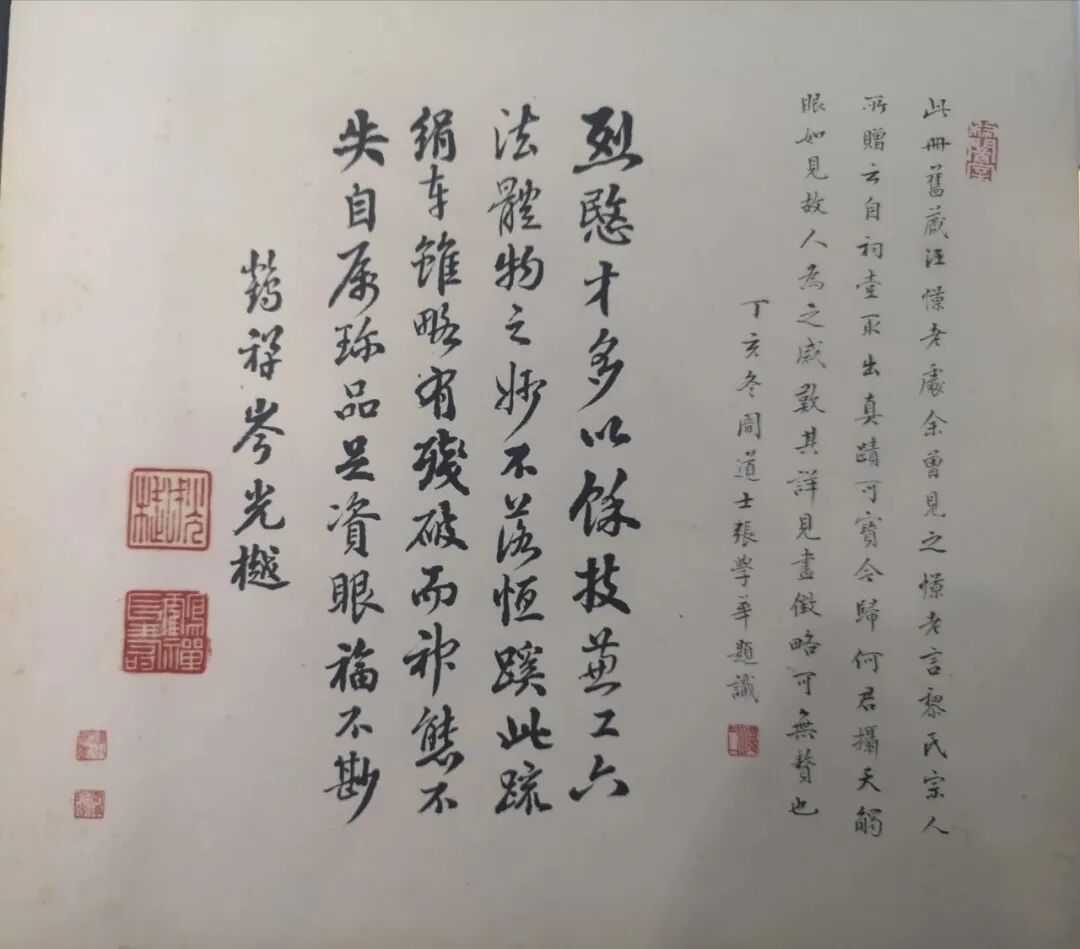 此冊舊藏汪憬老處余曾見之憬老言黎氏宗人
所贈云自祠堂取出真蹟可寶今歸何君攝天觸
眼如見故人為之感歎其詳見畫徵略可無贅也
丁亥冬闇道士張學華題識
烈愍才多以餘技兼工六
法體物之妙不落恒蹊此疏
絹本雖略有殘破而神態不
失自屬珍品足資眼福不尠
鶴禪岑光樾
光樾